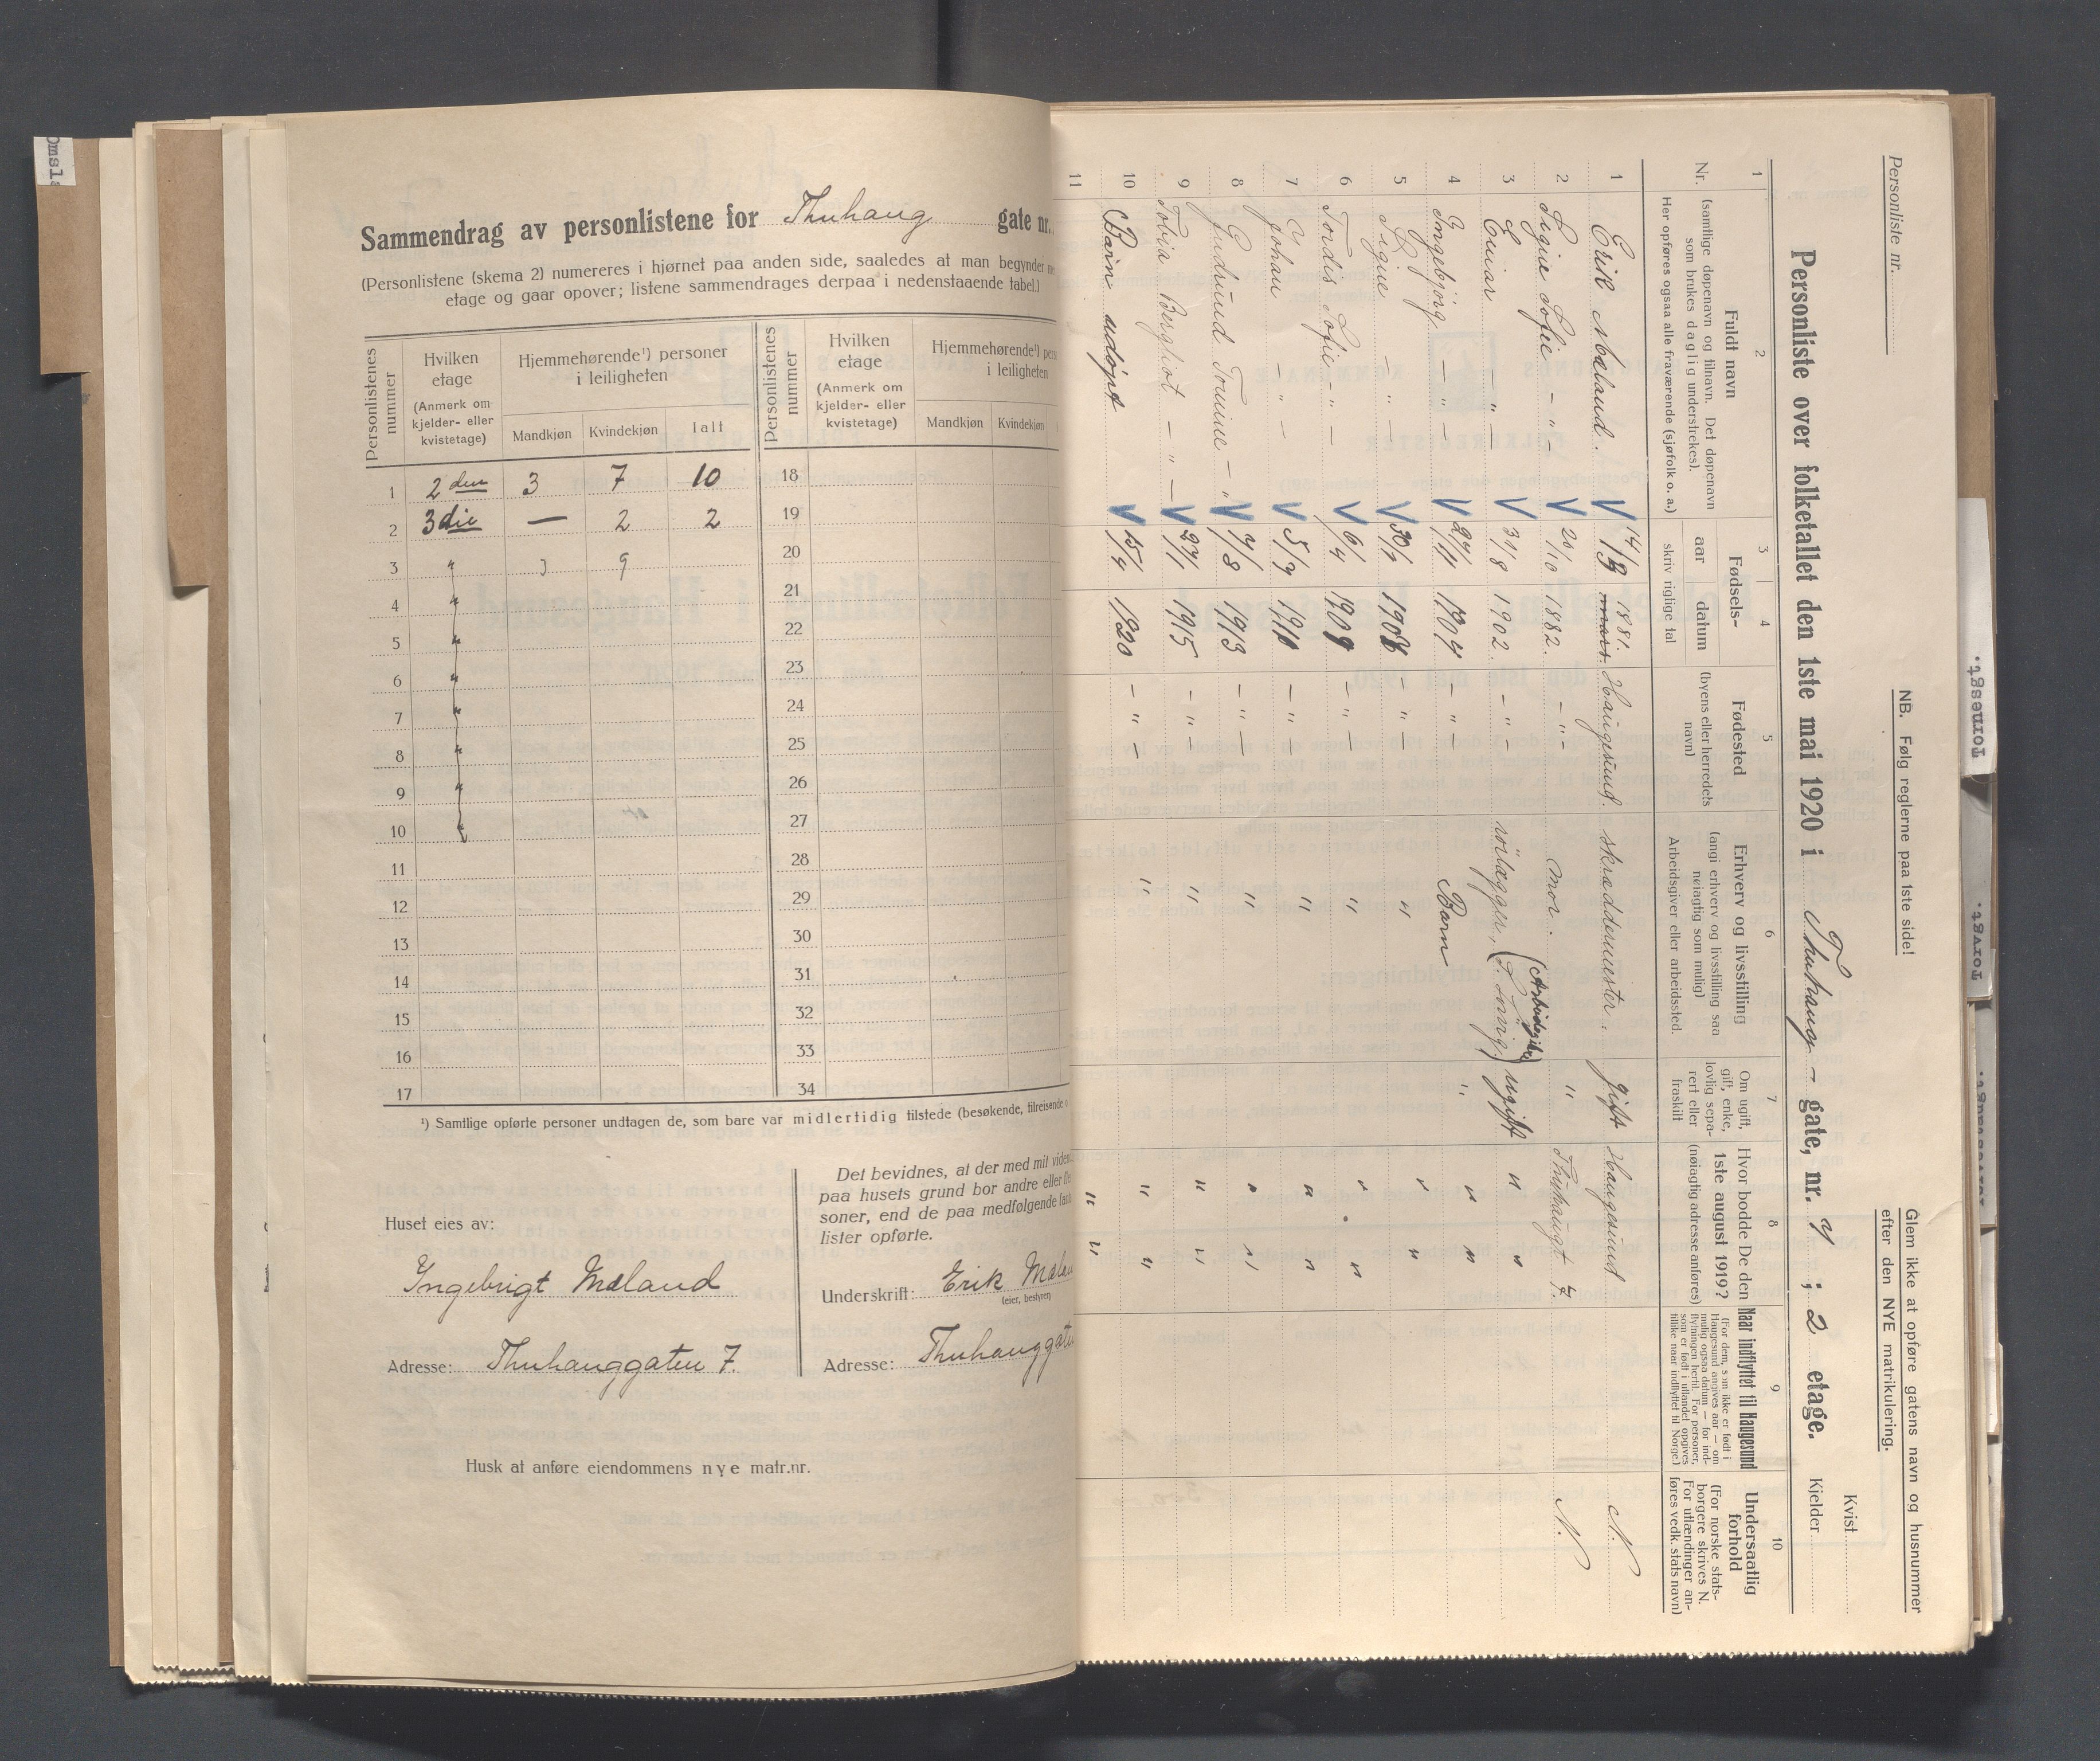 Sammendrag av personlistene for Thuhaug gate nr.
(Personlistene (skema 2) numereres i hjørnet paa anden side, saaledes at man begynder
etage og gaar opover; listene sammendrages derpaa i nedenstaaende tabel.)
Personlistenes nummer
Hvilken etage
(Anmerk om kjelder- eller kvistetage)
Hjemmehørende¹) personer i leiligheten
Mandkjøn Kvindekjøn Ialt
Personlistenes nummer
Hvilken etage
(Anmerk om kjelder- eller kvistetage)
Hjemmehørende¹) pers
i leiligheten
Mandkjøn Kvindekjøn
1 2den 3 7 10 18
2 3die — 2 2 19
3 " 3 9 20
4 " 21
5 " 22
6 " 23
7 " 24
8 " 25
9 " 26
10 " 27
11 28
12 29
13 30
14 31
15 32
16 33
17 34
¹) Samtlige opførte personer undtagen de, som bare var midlertidig tilstede (besøkende, tilreisende
Huset eies av:
Ingebrigt Mæland
Adresse: Thuhauggaten 7.
Det bevidnes, at der med mit viden
paa husets grund bor andre eller fler
soner, end de paa medfølgende
lister opførte.
Underskrift: Erik Mælan
(eier, bestyrer)
Adresse: Thuhauggate
Husk at anføre eiendommens nye matr.nr.
Personliste nr.
NB. Følg reglerne paa 1ste side!
Glem ikke at opføre gatens navn og husnummer
efter den NYE matrikulering.
Kvist
Personliste over folketallet den 1ste mai 1920 i Thuhaug - gate, nr. 7 ; 2 etage.
Kjelder
1 2 3 4 5 6 7 8 9 10
Nr.
Fuldt navn
(samtlige døpenavn og tilnavn. Det døpenavn
som brukes daglig understrekes).
Her opføres ogsaa alle fraværende (sjøfolk o. a.)
Fødsels-
aar datum
skriv rigtige tal
Fødested
(byens eller herredets
navn)
Erhverv og livsstilling
(angi erhverv og livsstilling saa
nøiagtig som mulig)
Arbeidsgiver eller arbeidssted.
Om ugift,
gift, enke,
lovlig sepa-
rert eller
fraskilt
Hvor bodde De den
1ste august 1919?
(nøiagtig adresse anføres)
Naar indflyttet til Haugesund
(For dem, som ikke er født i
Haugesund angives aar — om
mulig ogsaa datum — for ind-
flytningen hertil. For personer,
som er født i utlandet opgives
tillike naar indflyttet til Norge)
Undersaatlig
forhold
(For norske stats-
borgere skrives N.
For utlændinger an-
føres vedk. stats navn)
1 Erik Mæland. V 14/3 1881. Haugesund. skræddermester. gift Haugesund N.
2 Signe Sofie - " - V 20/10 1882. - " - mor. " Thuhaugt 7. N.
3 Einar - " - V 31/8 1902. - " - rörlægger, (Arbeidsgiver) ugift " "
4 Ingebjörg - " - V 27/11 1904 - " - Barn " " "
5 Signe - " - V 30/1 1908 - " - " " "
6 Tordis Sofie - " - V 6/4 1909 - " - " " "
7 Johan - " - V 5/7 1910 - " - " " "
8 Gudrund Tomine - " V 7/8 1913 - " - " " "
9 Tobia Bergliot - " - V 27/1 1915 - " - " " "
10 Barn udöpt V 15/4 1920 - " - " " "
11 " "
Tornesgt.
Torvgt.